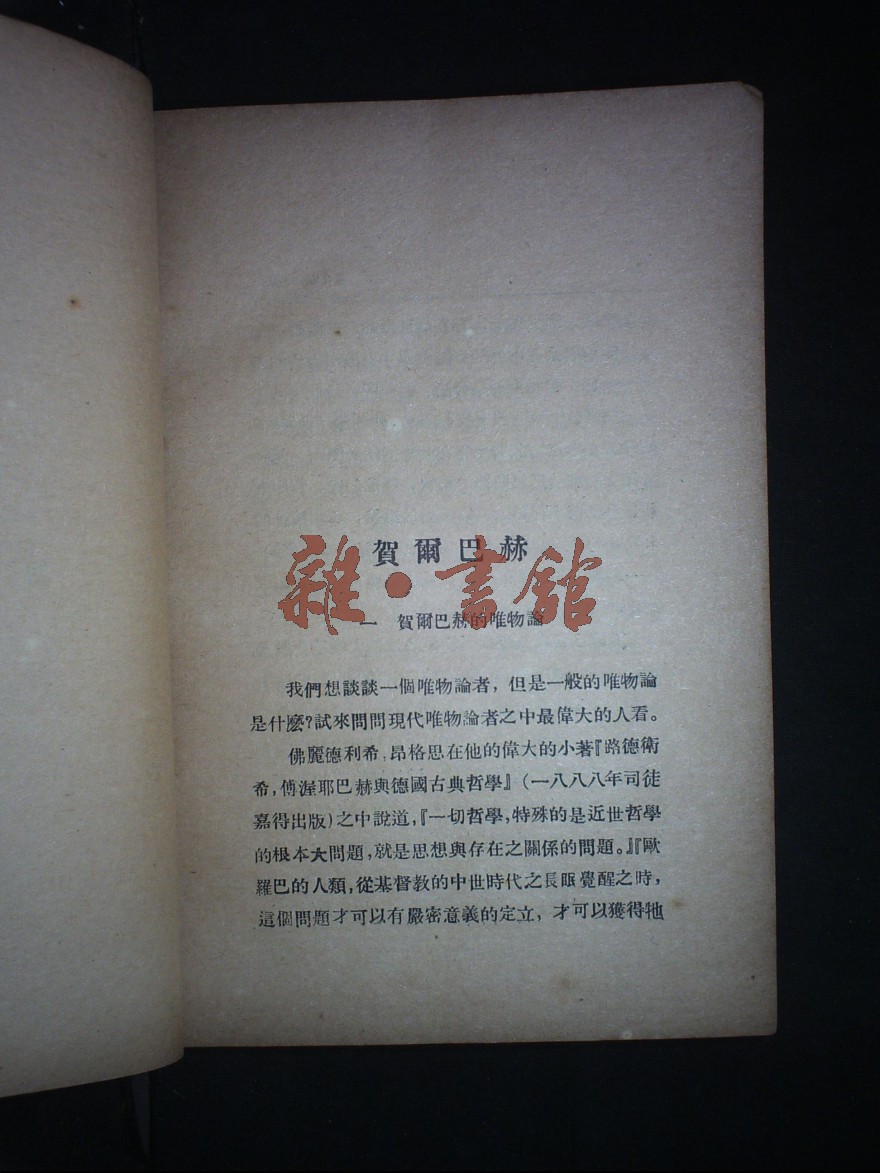 賀爾巴赫
雜·書館
一 賀爾巴赫的唯物論
我們想談談一個唯物論者，但是一般的唯物論
是什麽?試來問問現代唯物論者之中最偉大的人看。
佛麗德利希．昂格思在他的偉大的小著『路德衛
希，傅渥耶巴赫與德國古典哲學』（一八八八年司徒
嘉得出版）之中說道，『一切哲學，特殊的是近世哲學
的根本大問題，就是思想與存在之關係的問題。』『歐
羅巴的人類，從基督教的中世時代之長眠覺醒之時，
這個問題才可以有嚴密意義的定立，才可以獲得牠